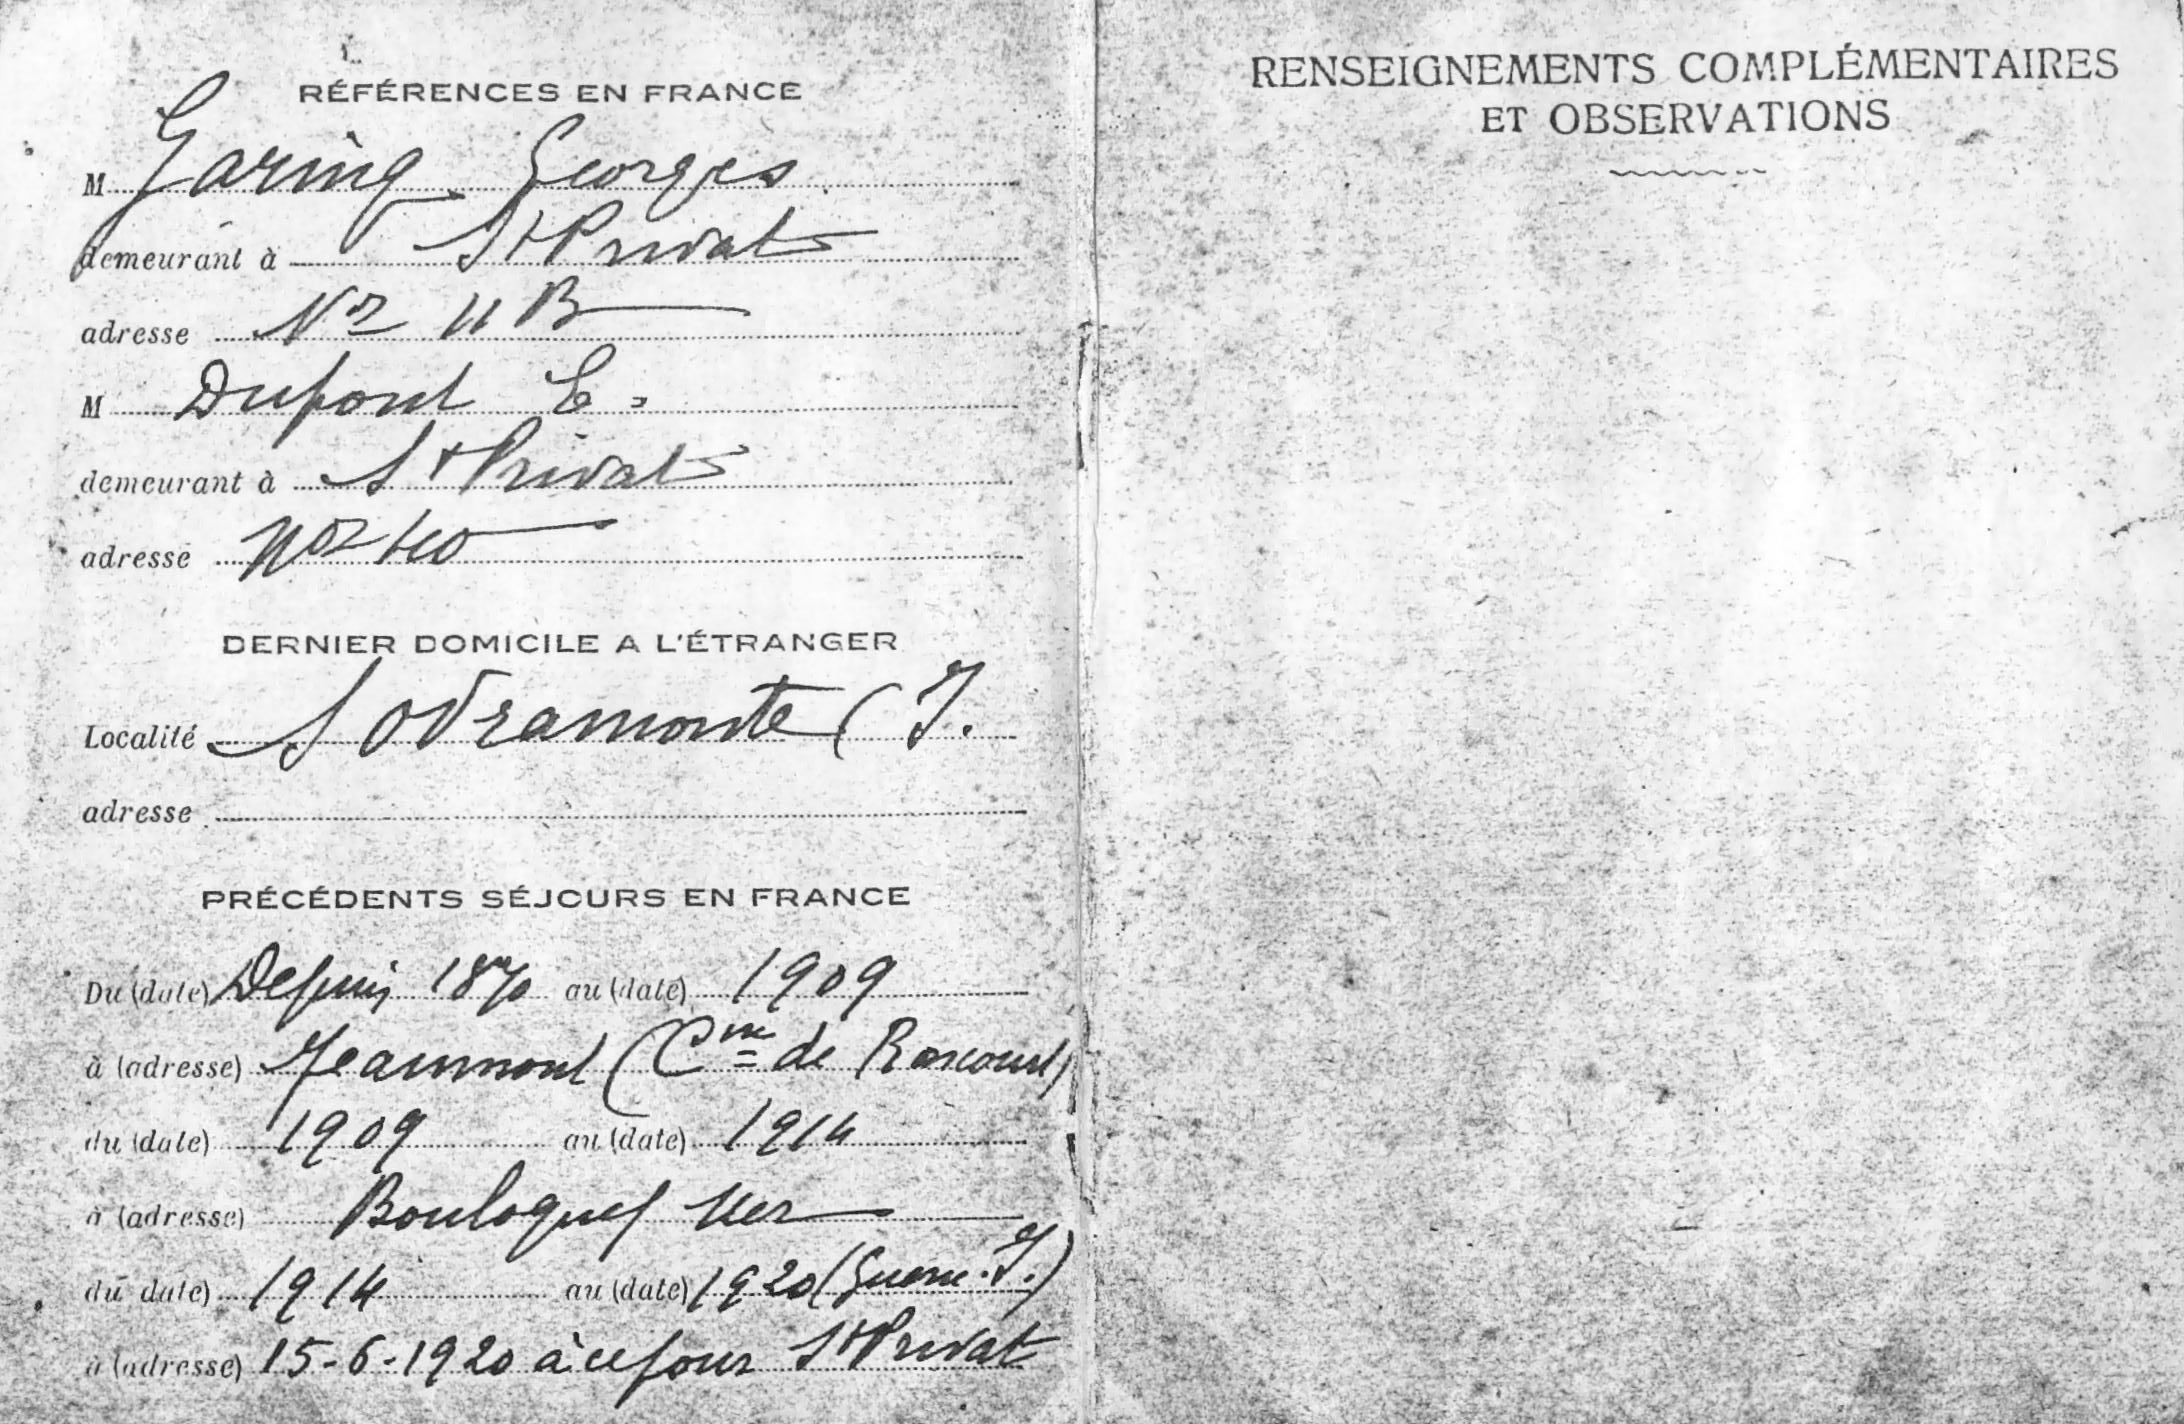 RÉFÉRENCES EN FRANCE
M Garing Georges
demeurant à St Privat
adresse No 11 B
M Dupont E.
demeurant à St Privat
adresse No 40
DERNIER DOMICILE A L'ÉTRANGER
Localité Sovramonte (I.
adresse
PRÉCÉDENTS SÉJOURS EN FRANCE
Du (date) Depuis 1870 au (date) 1909
à (adresse) Jeaumont (Cne de Roncourt)
du (date) 1909 au (date) 1914
à (adresse) Boulogne s/ Mer
du date) 1914 au (date) 1920 (Guerre. I.)
à (adresse) 15-6-1920 à ce jour St Privat
RENSEIGNEMENTS COMPLÉMENTAIRES
ET OBSERVATIONS